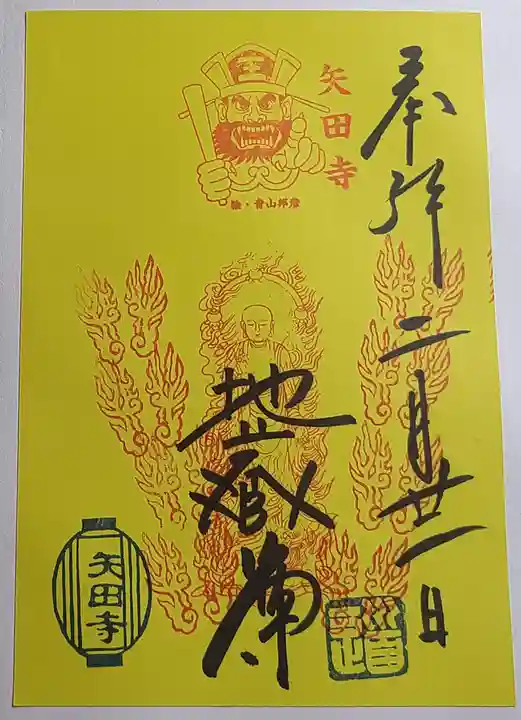 奉拝 二月廿一日
王
矢田寺
絵・青山邦彦
地蔵尊
矢田寺